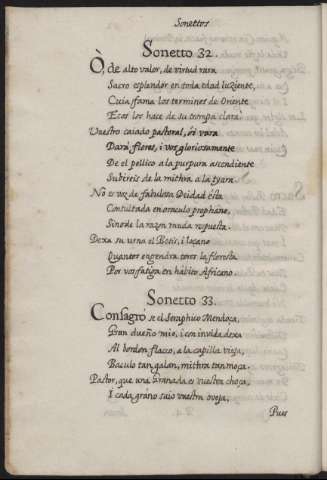 Sonettos
Sonetto 32.
Ò, de alto valor, de virtud rara
Sacro esplendor en toda edad luziente,
Cuia fama los terminos de Oriente
Ecos los hace de su trompa clara;
Vuestro caiado pastoral, oi vara
Dará flores, i vos gloriosamente
De el pellico a la purpura ascendiente
Subireis de la mithra a la tyara.
No es voz de fabulosa Deidad ésta
Consultada en oraculo prophano,
Sino de la razon muda respuesta.
Dexa su urna el Betis, i loçano
Quantos engendra toros la floresta
Por vos fatiga en habito Africano.
Sonetto 33.
Consagró se el Seraphico Mendoça,
Gran dueño mio, i con invidia dexa
Al bordon flacco, a la capilla vieja,
Baculo tan galan, mithra tan moça.
Pastor, que una Granada es vuestra choça,
I cada grano suio vuestra oveja,
Pues